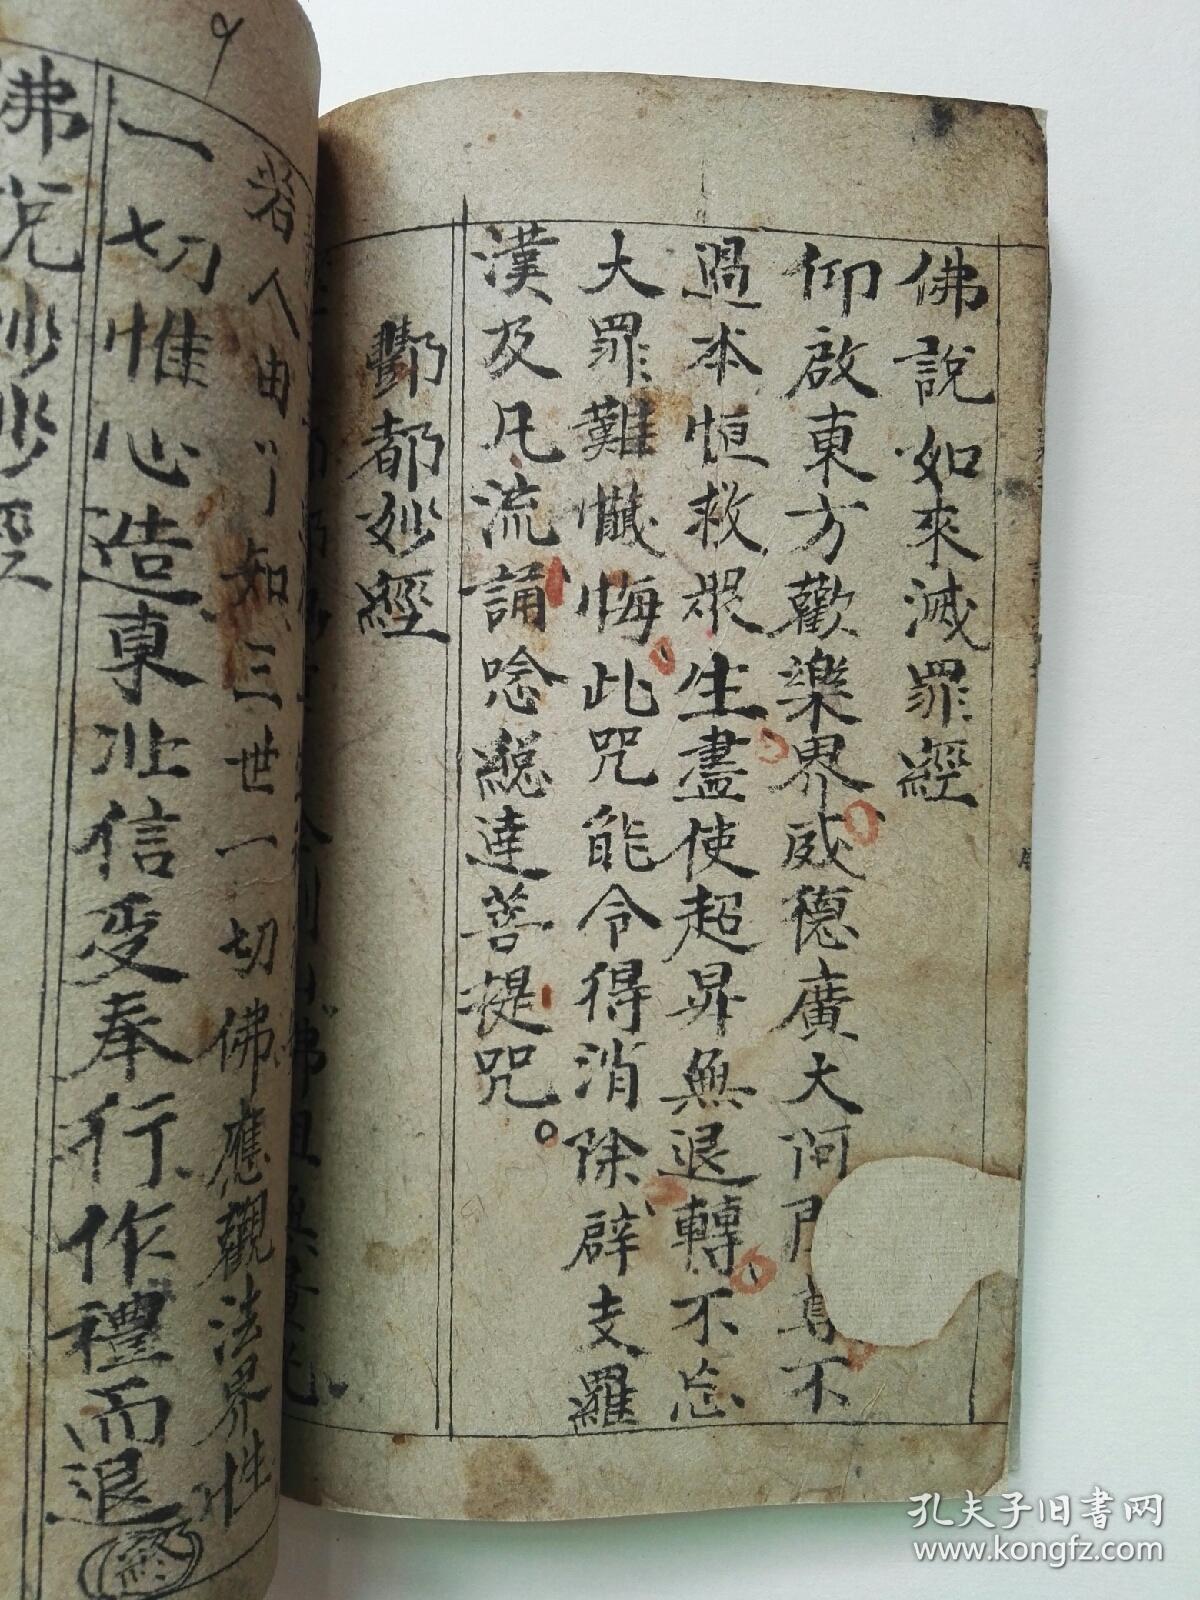 佛說如來滅罪經
仰啟東方歡樂界威德廣大阿尊不
過本恒救眾生盡使超昇無退轉不忘
大罪難懺悔此咒能令得消除辟支羅
漢及凡流誦唸總達菩提咒。
酆都妙經
若人由丫知三世一切佛應觀法界性
一切惟心造東沚信受奉行作禮而退
終
佛說妙沙經
孔夫子旧书网
www.kongfz.com